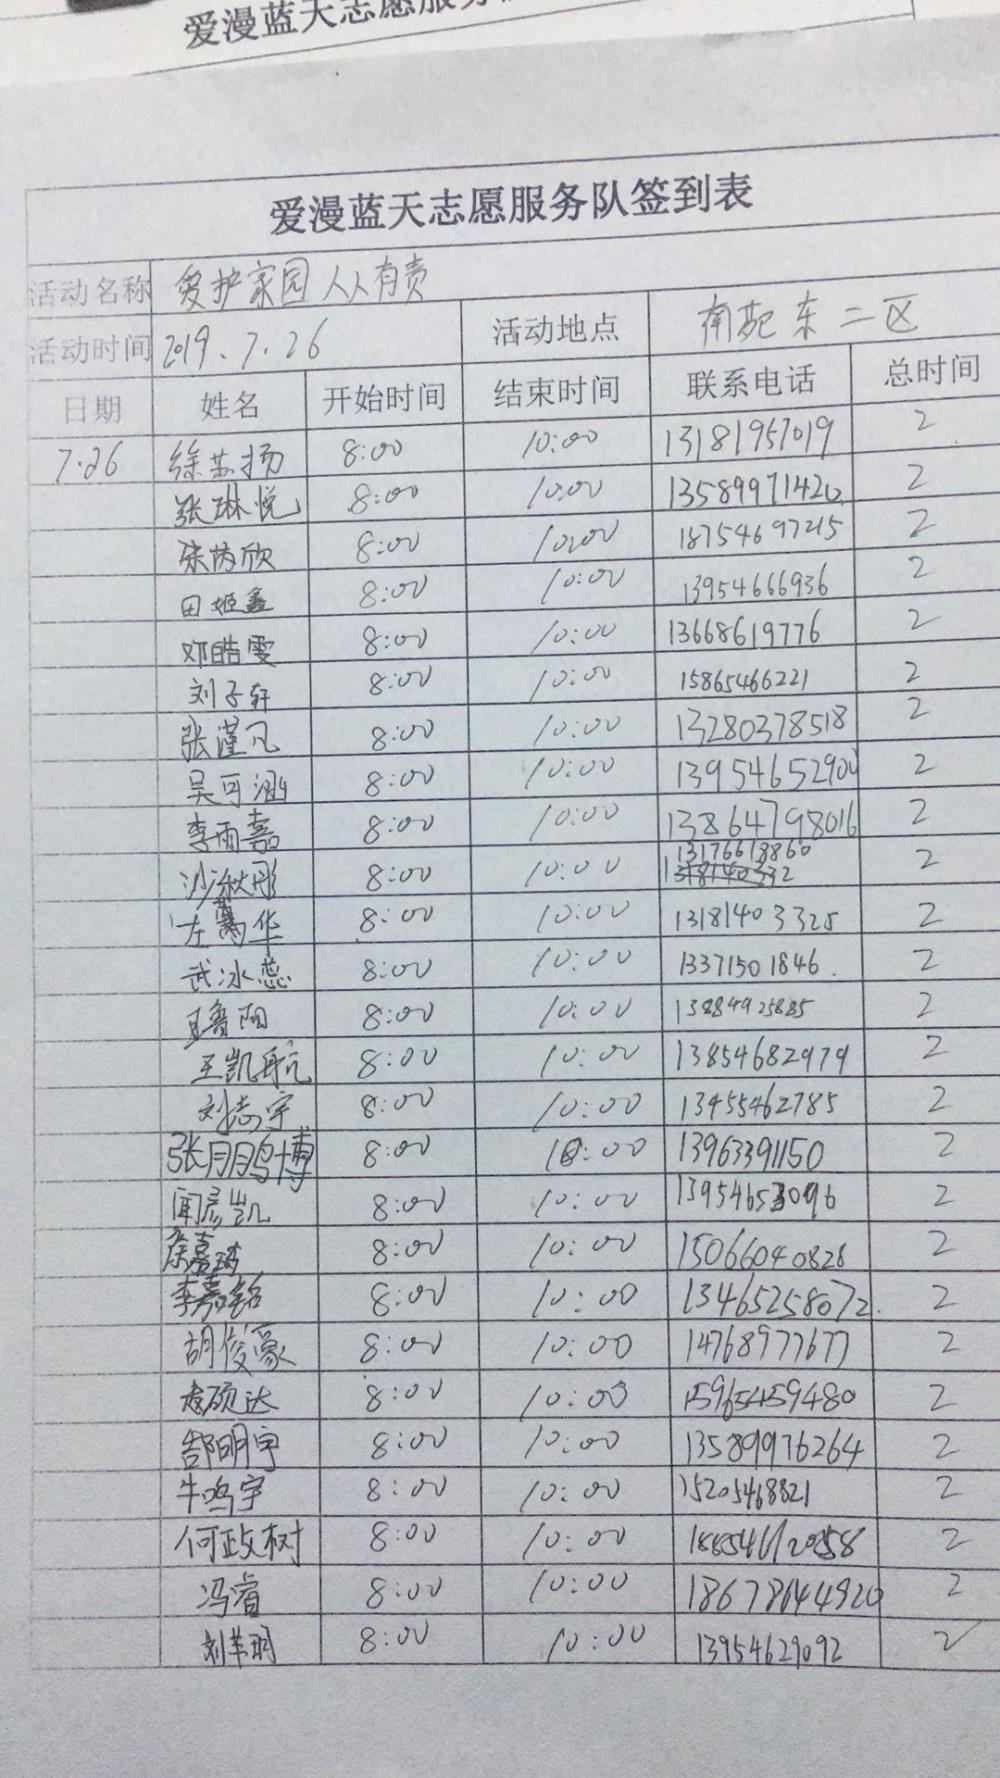 爱漫蓝天志愿服务
爱漫蓝天志愿服务队签到表
活动名称 爱护家园人人有责
活动时间 2019.7.26 活动地点 南苑东二区
日期 姓名 开始时间 结束时间 联系电话 总时间
7.26 徐 扬 8:00 10:00 13181957019 2
张琳悦 8:00 10:00 1358997142 2
欣 8:00 10:00 18754697215 2
田姬鑫 8:00 10:00 13954666936 2
邓皓雯 8:00 10:00 13668619776 2
刘子轩 8:00 10:00 15865466221 2
张瑾凡 8:00 10:00 13280378518 2
吴可涵 8:00 10:00 13954652904 2
李雨嘉 8:00 10:00 13864798016 2
沙秋彤 8:00 10:00 13176618860 2
左 华 8:00 10:00 13181403325 2
武冰蕊 8:00 10:00 13371501846. 2
王鲁阳 8:00 10:00 13884925885 2
王凯航 8:00 10:00 13854682979 2
刘志宇 8:00 10:00 13455462785 2
张鹏博 8:00 10:00 13963391150 2
闻彦凯 8:00 10:00 13954653096 2
徐嘉 8:00 10:00 15066040828 2
李嘉铭 8:00 10:00 13465258072. 2
胡俊豪 8:00 10:00 14768977677 2
硕达 8:00 10:00 15965459480 2
郜明宇 8:00 10:00 13589976264 2
牛鸣宇 8:00 10:00 15205468821 2
何政树 8:00 10:00 2
冯睿 8:00 10:00 18678644920 2
刘 8:00 10:00 13954629092 2